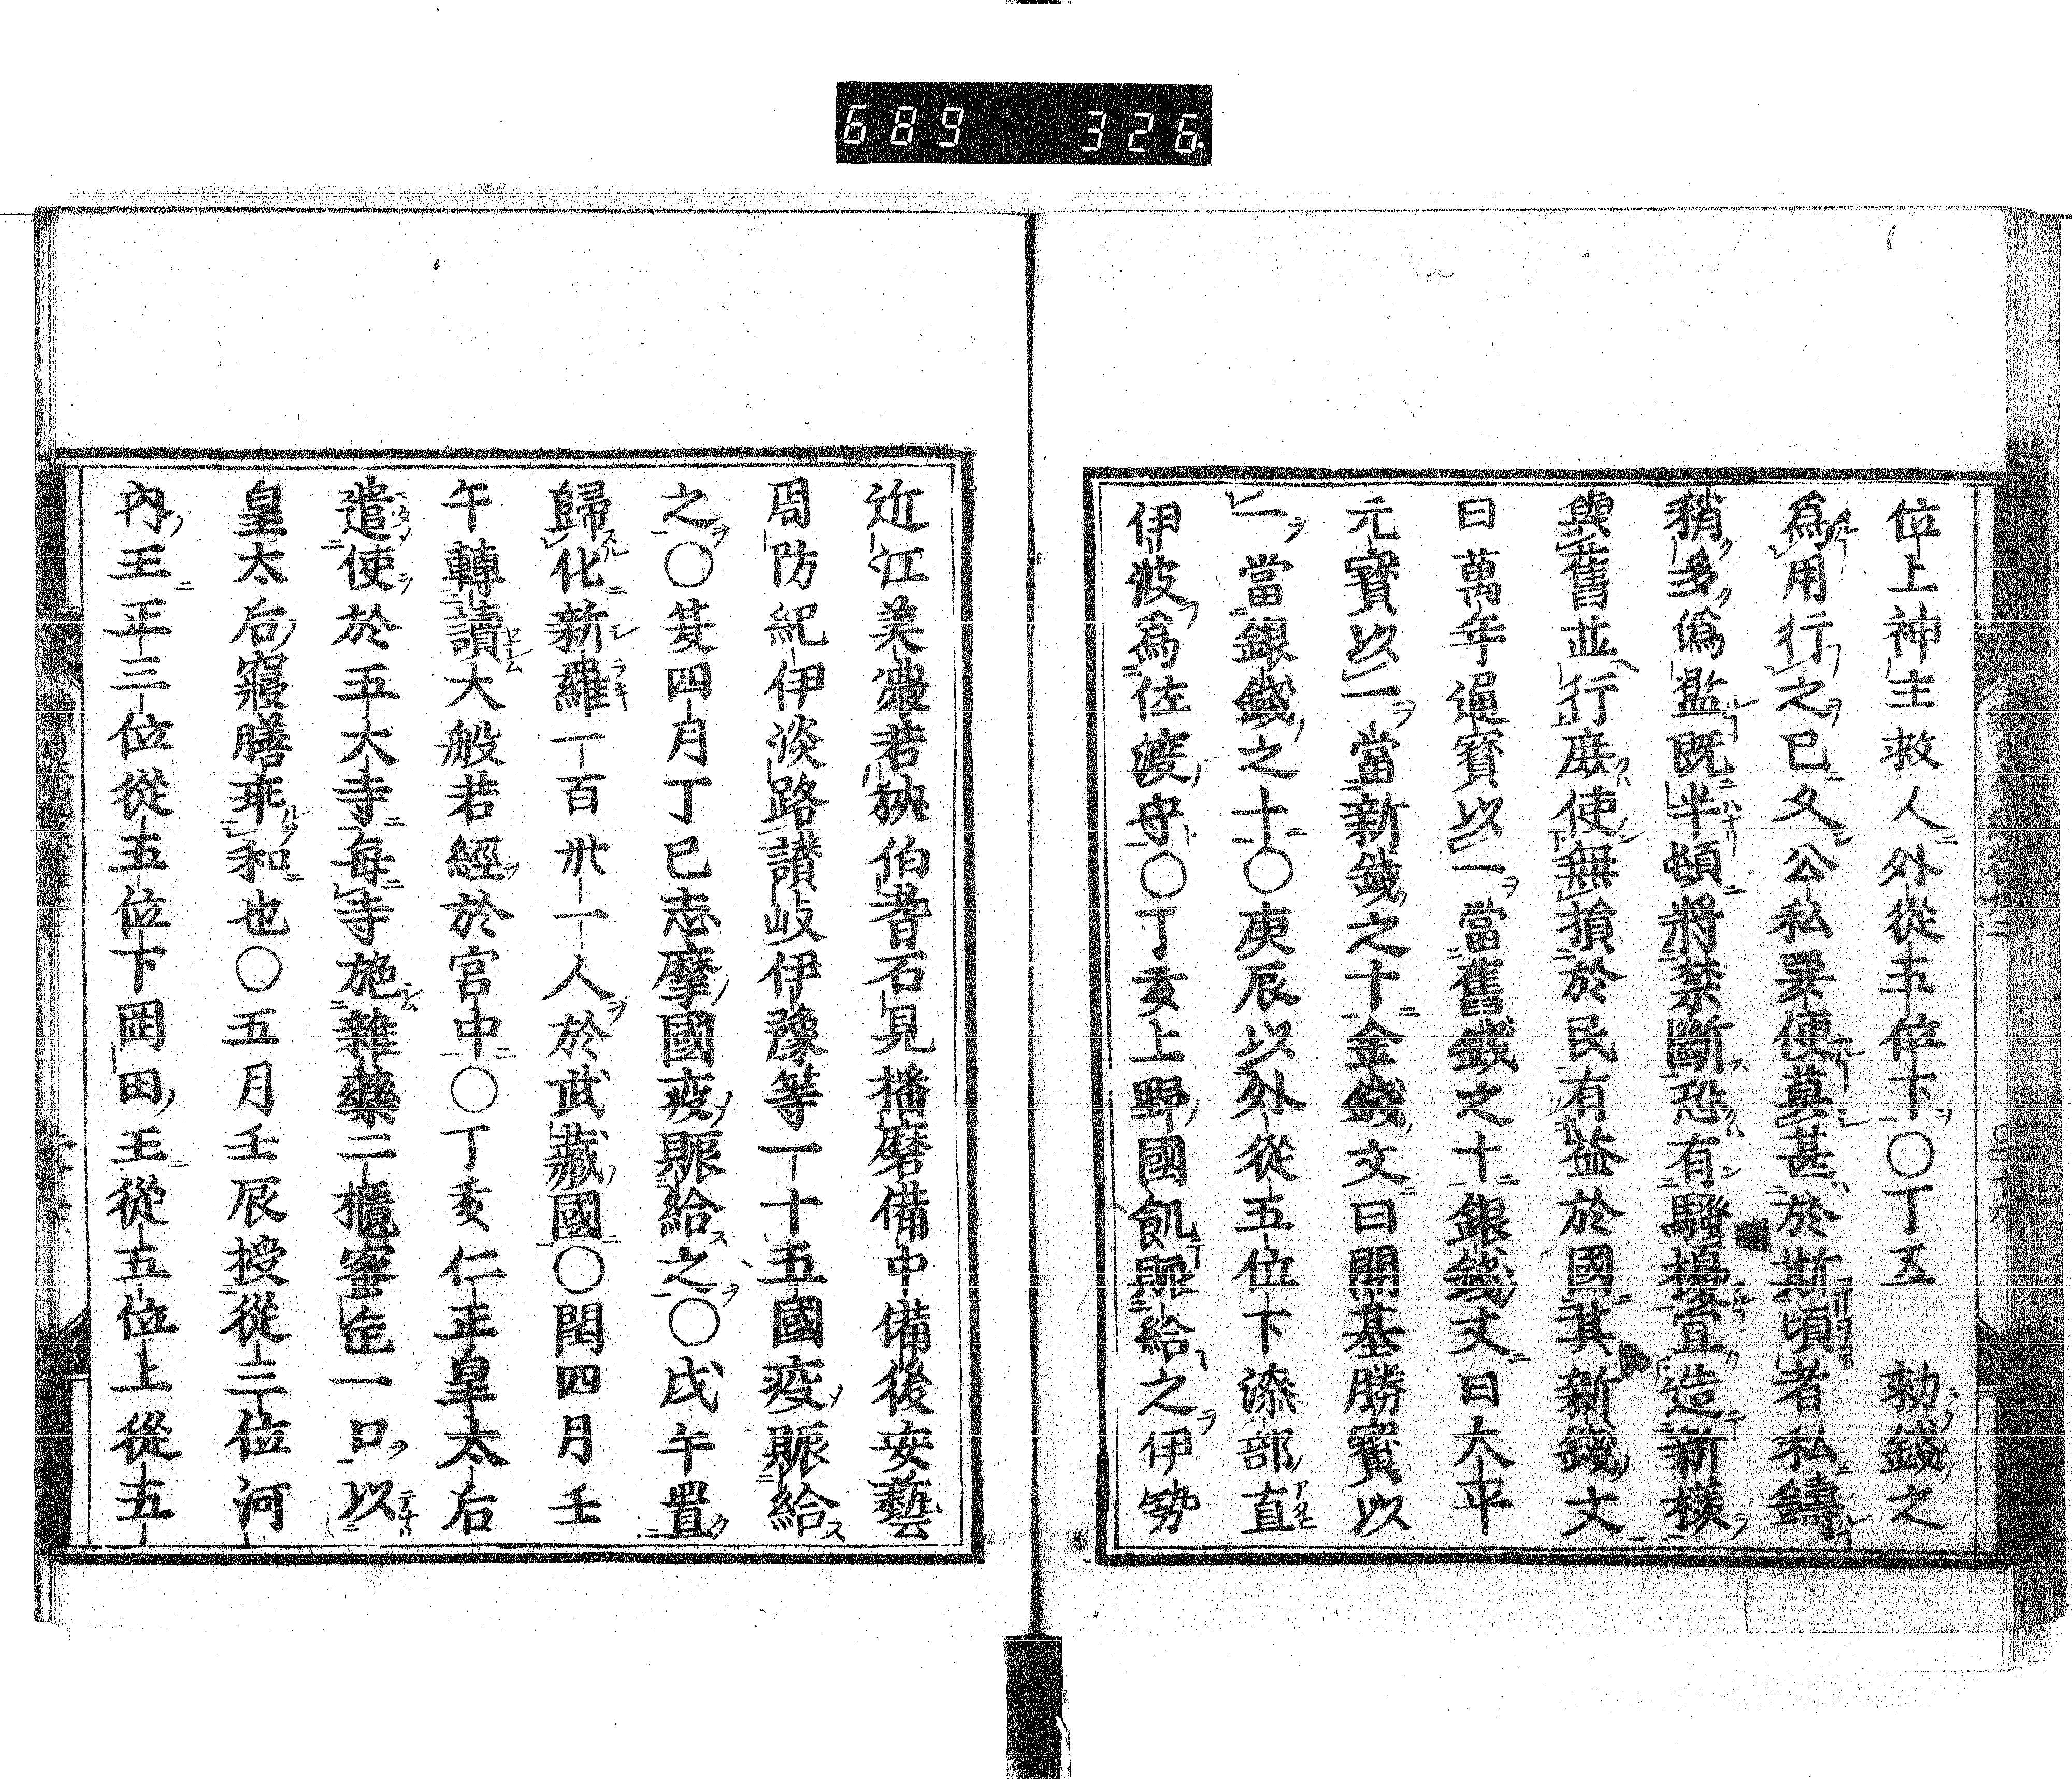 689 326
位上神主救人外從五位下○丁丑 勅錢之
爲用行之已久公私要便莫甚於斯頃者私鑄
稍多僞濫既半頓將禁斷恐有騷擾宜造新樣
與舊並行庶使無損於民有益於國其新錢文
曰萬年通寳以一當舊錢之十銀錢文曰大平
元寳以一當新錢之十金錢文曰開基勝寳以
一當銀錢之十○庚辰以外從五位下漆部直
伊波爲佐渡守○丁亥上野國飢賑給之伊勢
近江美濃若狹伯耆石見播磨備中備後安藝
周防紀伊淡路讃岐伊豫等一十五國疫賑給
之○夏四月丁巳志摩國疫賑給之○戊午置
歸化新羅一百卅一人於武藏國○閏四月壬
午轉讀大般若經於宮中○丁亥仁正皇太后
遣使於五大寺每寺施雜藥二櫃蜜缶一口以
皇太后寢膳乖和也○五月壬辰授從三位河
內王正三位從五位下岡田王從五位上從五